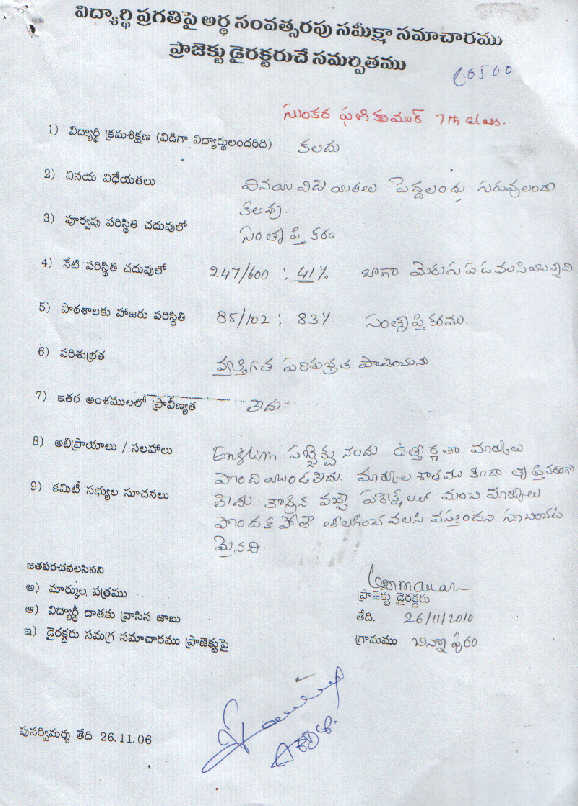 విద్యార్థి ప్రగతిపై అర్థ సంవత్సరపు సమీక్షా సమాచారము
ప్రాజెక్టు డైరక్టరుచే సమర్పితము
సుంకర ఫణికుమార్ 7th class.
1) విద్యార్థి క్రమశిక్షణ (విడిగా విద్యార్థులందరిది) కలదు
2) వినయ విధేయతలు వినయవిధేయతలు పెద్దలందు గురువులందు
కలవు.
3) పూర్వపు పరిస్థితి చదువులో సంతృప్తి కరం
4) నేటి పరిస్థితి చదువులో 247/600 : 41% బాగా మెరుగు పడవలసియున్నది
5) పాఠశాలకు హాజరు పరిస్థితి 85/102 : 83% సంతృప్తికరము
6) పరిశుభ్రత వ్యక్తిగత పరిశుభ్రత పాటించును
7) ఇతర అంశములలో ప్రావీణ్యత లేదు
8) అభిప్రాయాలు / సలహాలు English సబ్జెక్టు నందు ఉత్తీర్ణతా మార్కులు
పొంది యుండలేదు. మార్కుల శాతము కూడా
9) కమిటీ సభ్యుల సూచనలు లేదు వచ్చే పరీక్షలలో మంచి మార్కులు
పొందక పోతే తొలగించ వలసి వస్తుందని
మైనది
జతపరచవలసినవి
అ) మార్కుల పత్రము
ఆ) విద్యార్థి దాతకు వ్రాసిన జాబు
ఇ) డైరక్టరు సమగ్ర సమాచారము ప్రాజెక్టుపై
ప్రాజెక్టు డైరక్టరు
తేది. 26/11/2010
గ్రామము చిన్నాపురం
పునర్విమర్శ తేది 26.11.06